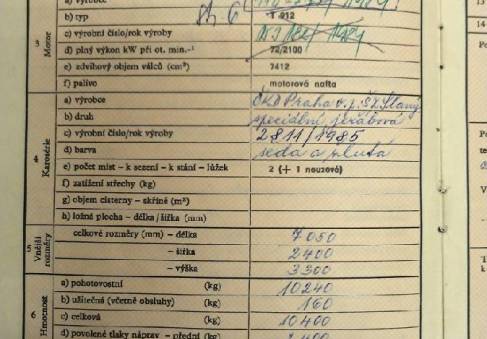 a) výrobce
b) typ
c) výrobní číslo/rok výroby
d) plný výkon kW při ot. min.-¹ 72/2100
e) zdvihový objem válců (cm³) 7412
f) palivo motorová nafta
3 Motor
a) výrobce ČKD Praha o.p. Slaný
b) druh speciální jeřábová
c) výrobní číslo/rok výroby 2811/1985
d) barva šedá a žlutá
e) počet míst – k sezení – k stání – lůžek 2 (+ 1 nouzová)
f) zatížení střechy (kg)
g) objem cisterny – skříně (m³)
h) ložná plocha – délka/šířka (mm)
4 Karosérie
celkové rozměry (mm) – délka 7050
– šířka 2400
– výška 3300
5 Vnější rozměry
a) pohotovostní (kg) 10240
b) užitečná (včetně obsluhy) (kg) 160
c) celková (kg) 10400
d) povolené tlaky náprav – přední (kg)
6 Hmotnost
13
14